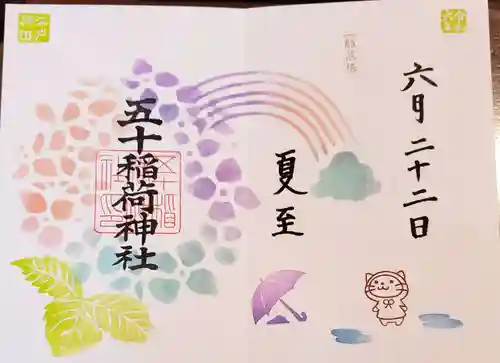 六月二十二日
夏至
五十稲荷神社